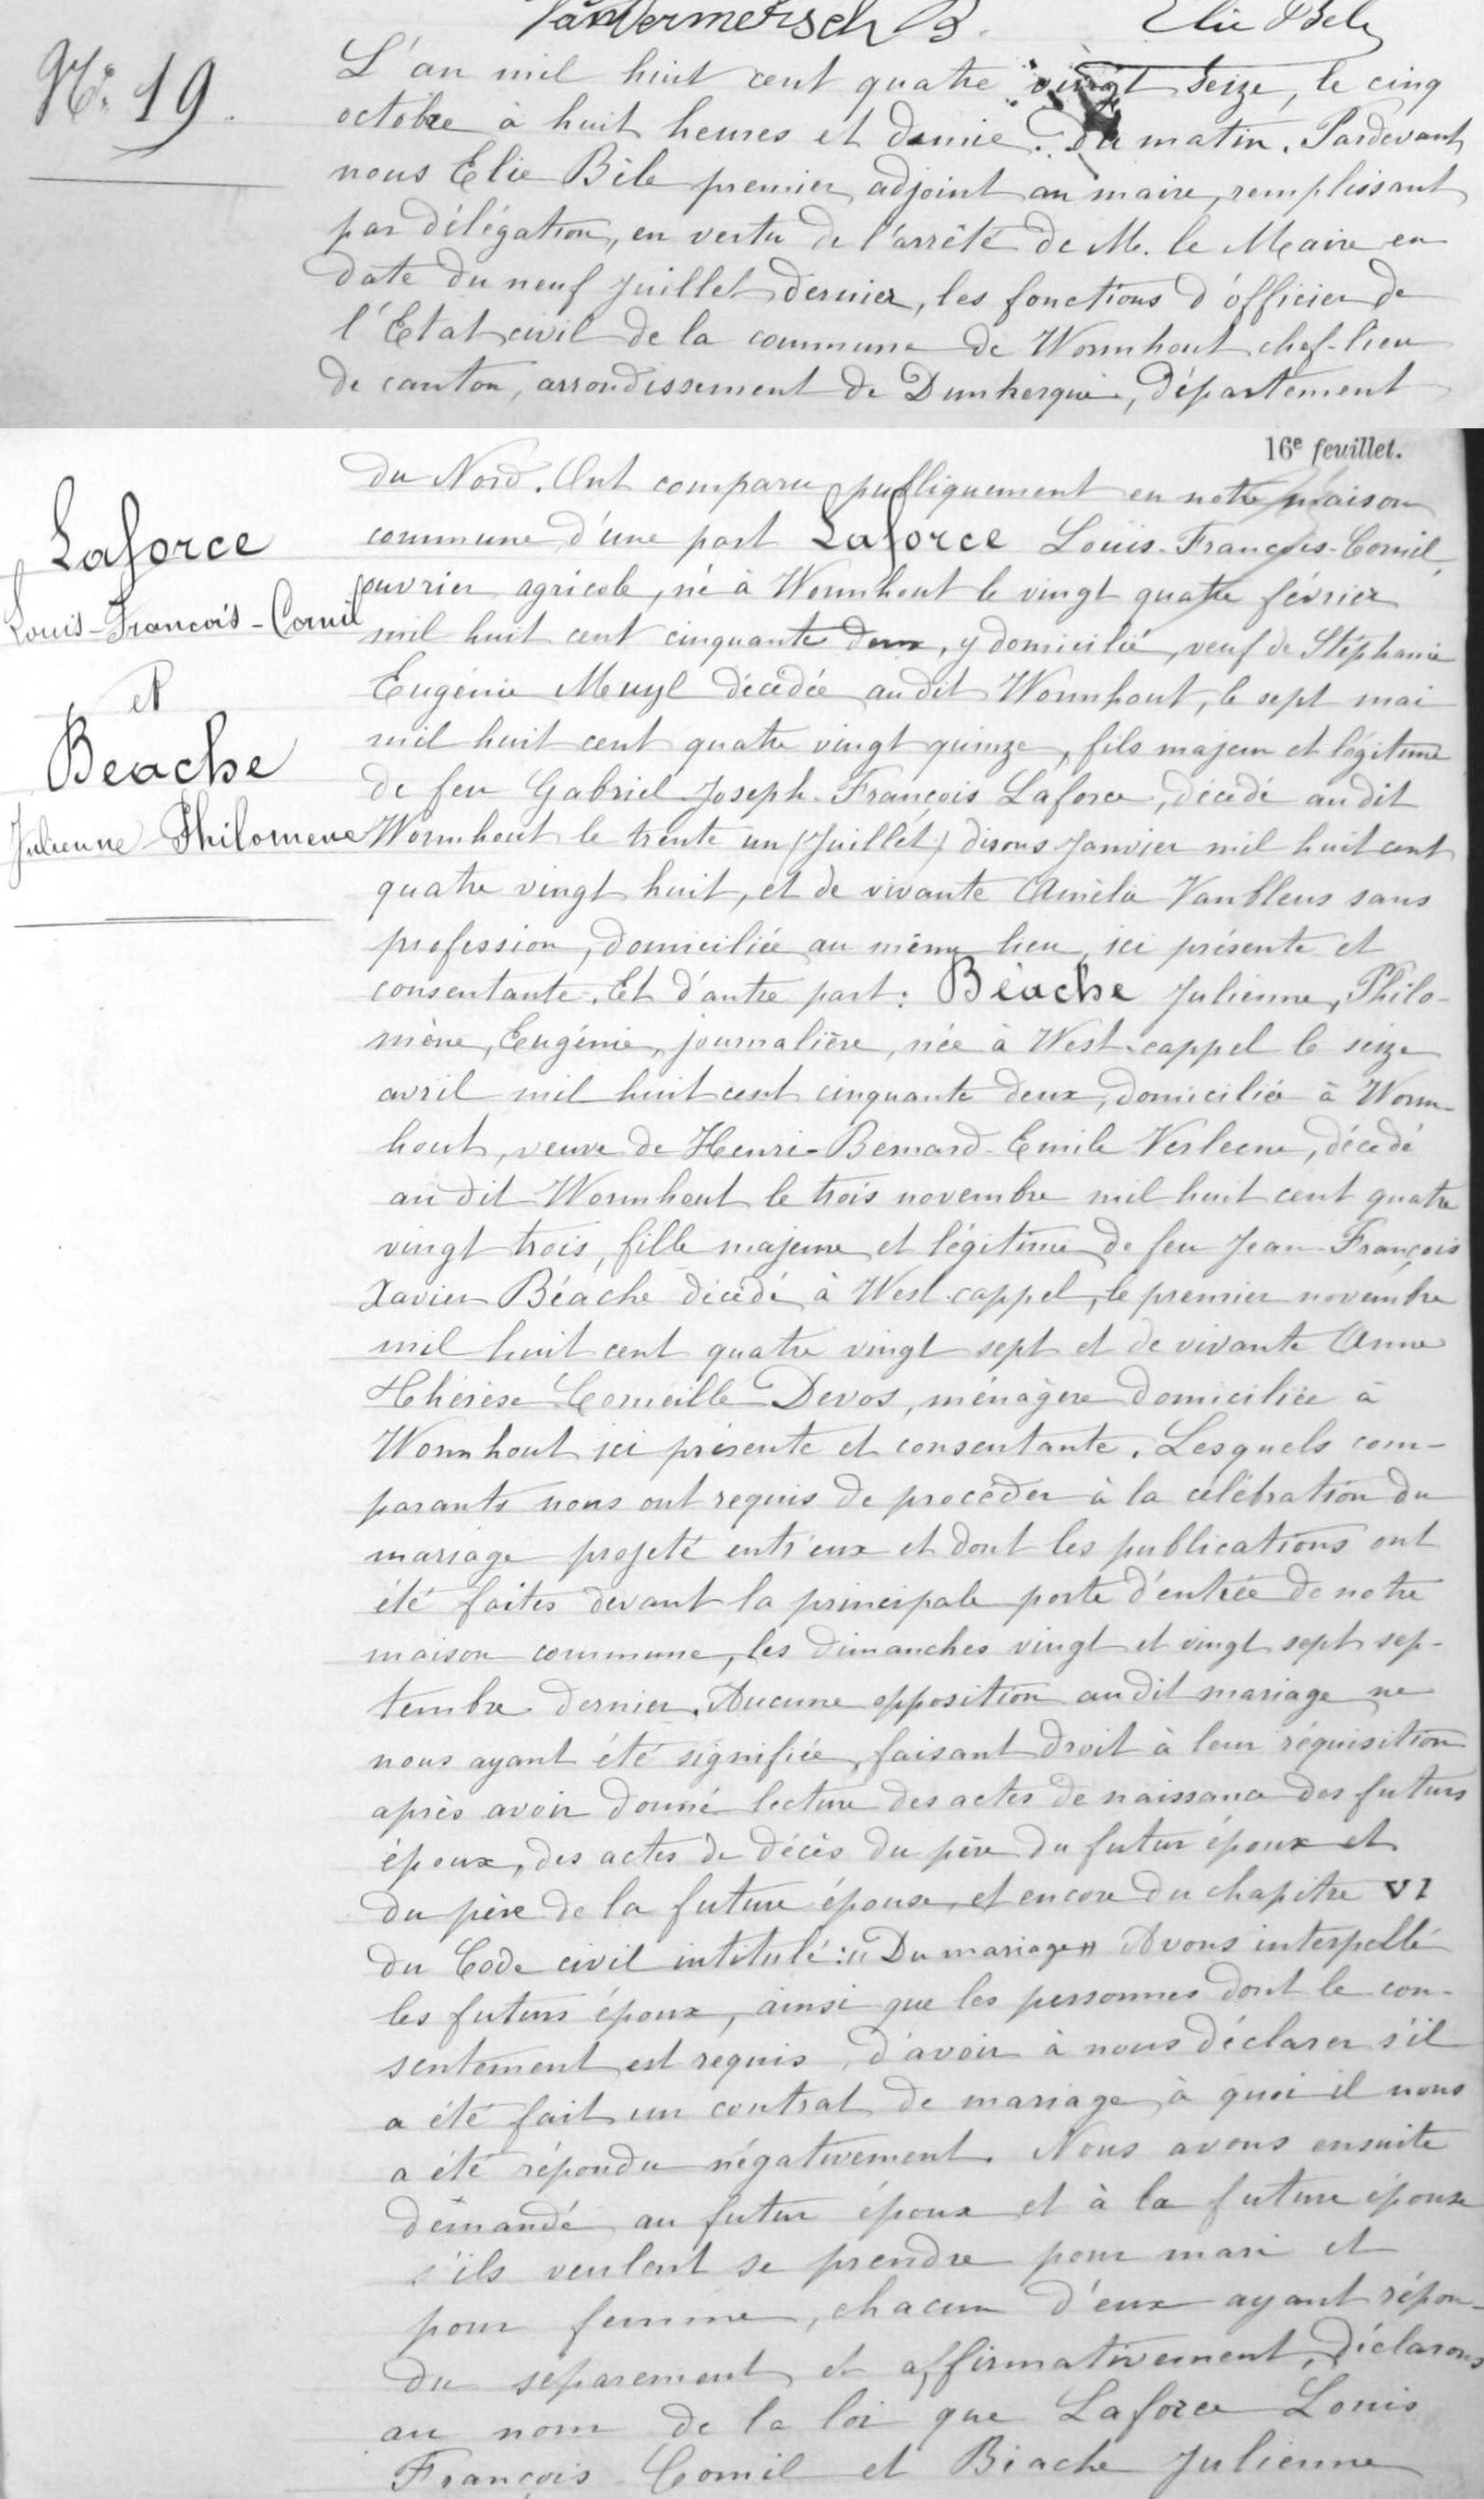 Vandermersch B. Elie Bele
N° 19.
L'an mil huit cent quatre vingt seize, le cinq
octobre à huit heures et demie du matin. Pardevant
nous Elie Bèle premier adjoint au maire, remplissant
par délégation, en vertu de l'arrêté de M. le Maire en
date du neuf Juillet dernier, les fonctions d'officier de
l'Etat civil de la commune de Wormhout chef-lieu
de canton, arrondissement de Dunkerque, département
16e feuillet.
du Nord. Ont comparu publiquement en notre maison
commune d'une part Laforce Louis-François-Cornil,
ouvrier agricole, né à Wormhout le vingt quatre février
mil huit cent cinquante deux, y domicilié, veuf de Stéphanie
Eugénie Meuyl décédée audit Wormhout, le sept mai
mil huit cent quatre vingt quinze, fils majeur et légitime
de feu Gabriel-Joseph-François Laforce, décédé audit
Wormhout le trente un (Juillet) disons Janvier mil huit cent
quatre vingt huit, et de vivante Amélie Vanbleus sans
profession, domiciliée au même lieu, ici présente et
consentante. Et d'autre part: Béache Julienne, Philo-
mène, Eugénie, journalière, née à West-cappel le seize
avril mil huit cent cinquante deux, domiciliée à Worm-
hout, veuve de Henri-Bernard-Emile Verleene, décédé
au dit Wormhout le trois novembre mil huit cent quatre
vingt trois, fille majeure et légitime de feu Jean-François
Xavier Béache décédé à West-cappel, le premier novembre
mil huit cent quatre vingt sept et de vivante Anne
Thérèse Corneille Devos, ménagère domiciliée à
Wormhout ici présente et consentante. Lesquels com-
parants nous ont requis de procéder à la célébration du
mariage projeté entr'eux et dont les publications ont
été faites devant la principale porte d'entrée de notre
maison commune, les dimanches vingt et vingt sept sep-
tembre dernier. Aucune opposition audit mariage ne
nous ayant été signifiée, faisant droit à leur réquisition
après avoir donné lecture des actes de naissance des futurs
époux, des actes de décès du père du futur époux et
du père de la future épouse, et encore du chapitre VI
du Code civil intitulé: "Du mariage" Avons interpellé
les futurs époux, ainsi que les personnes dont le con-
sentement est requis, d'avoir à nous déclarer s'il
a été fait un contrat de mariage, à quoi il nous
a été répondu négativement. Nous avons ensuite
demandé au futur époux et à la future épouse
s'ils veulent se prendre pour mari et
pour femme, chacun d'eux ayant répon-
du séparement et affirmativement, déclarons
au nom de la loi que Laforce Louis
François Cornil et Biache Julienne
Laforce
Louis-François-Cornil
et
Beache
Julienne-Philomene